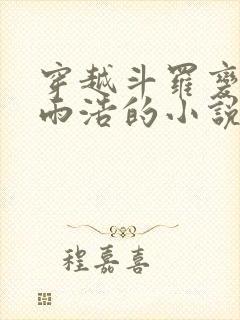 穿越斗羅變
雨浩的小說
程嘉喜